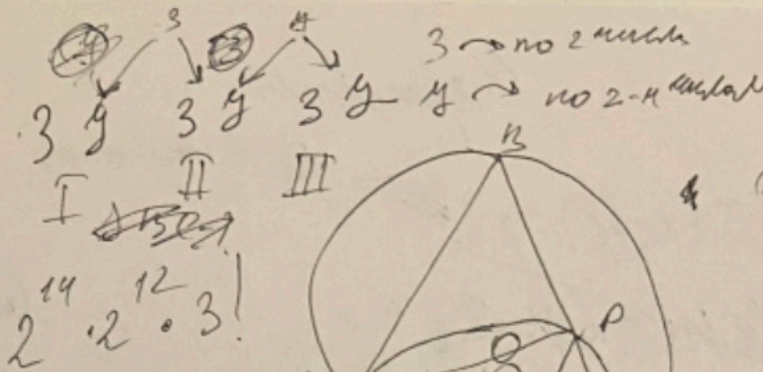 3 4
3 → по 2 числа
3 у 3 у 3 у у → по 2-м числам
I II III
2^14 · 2^12 · 3!
B
P
Q